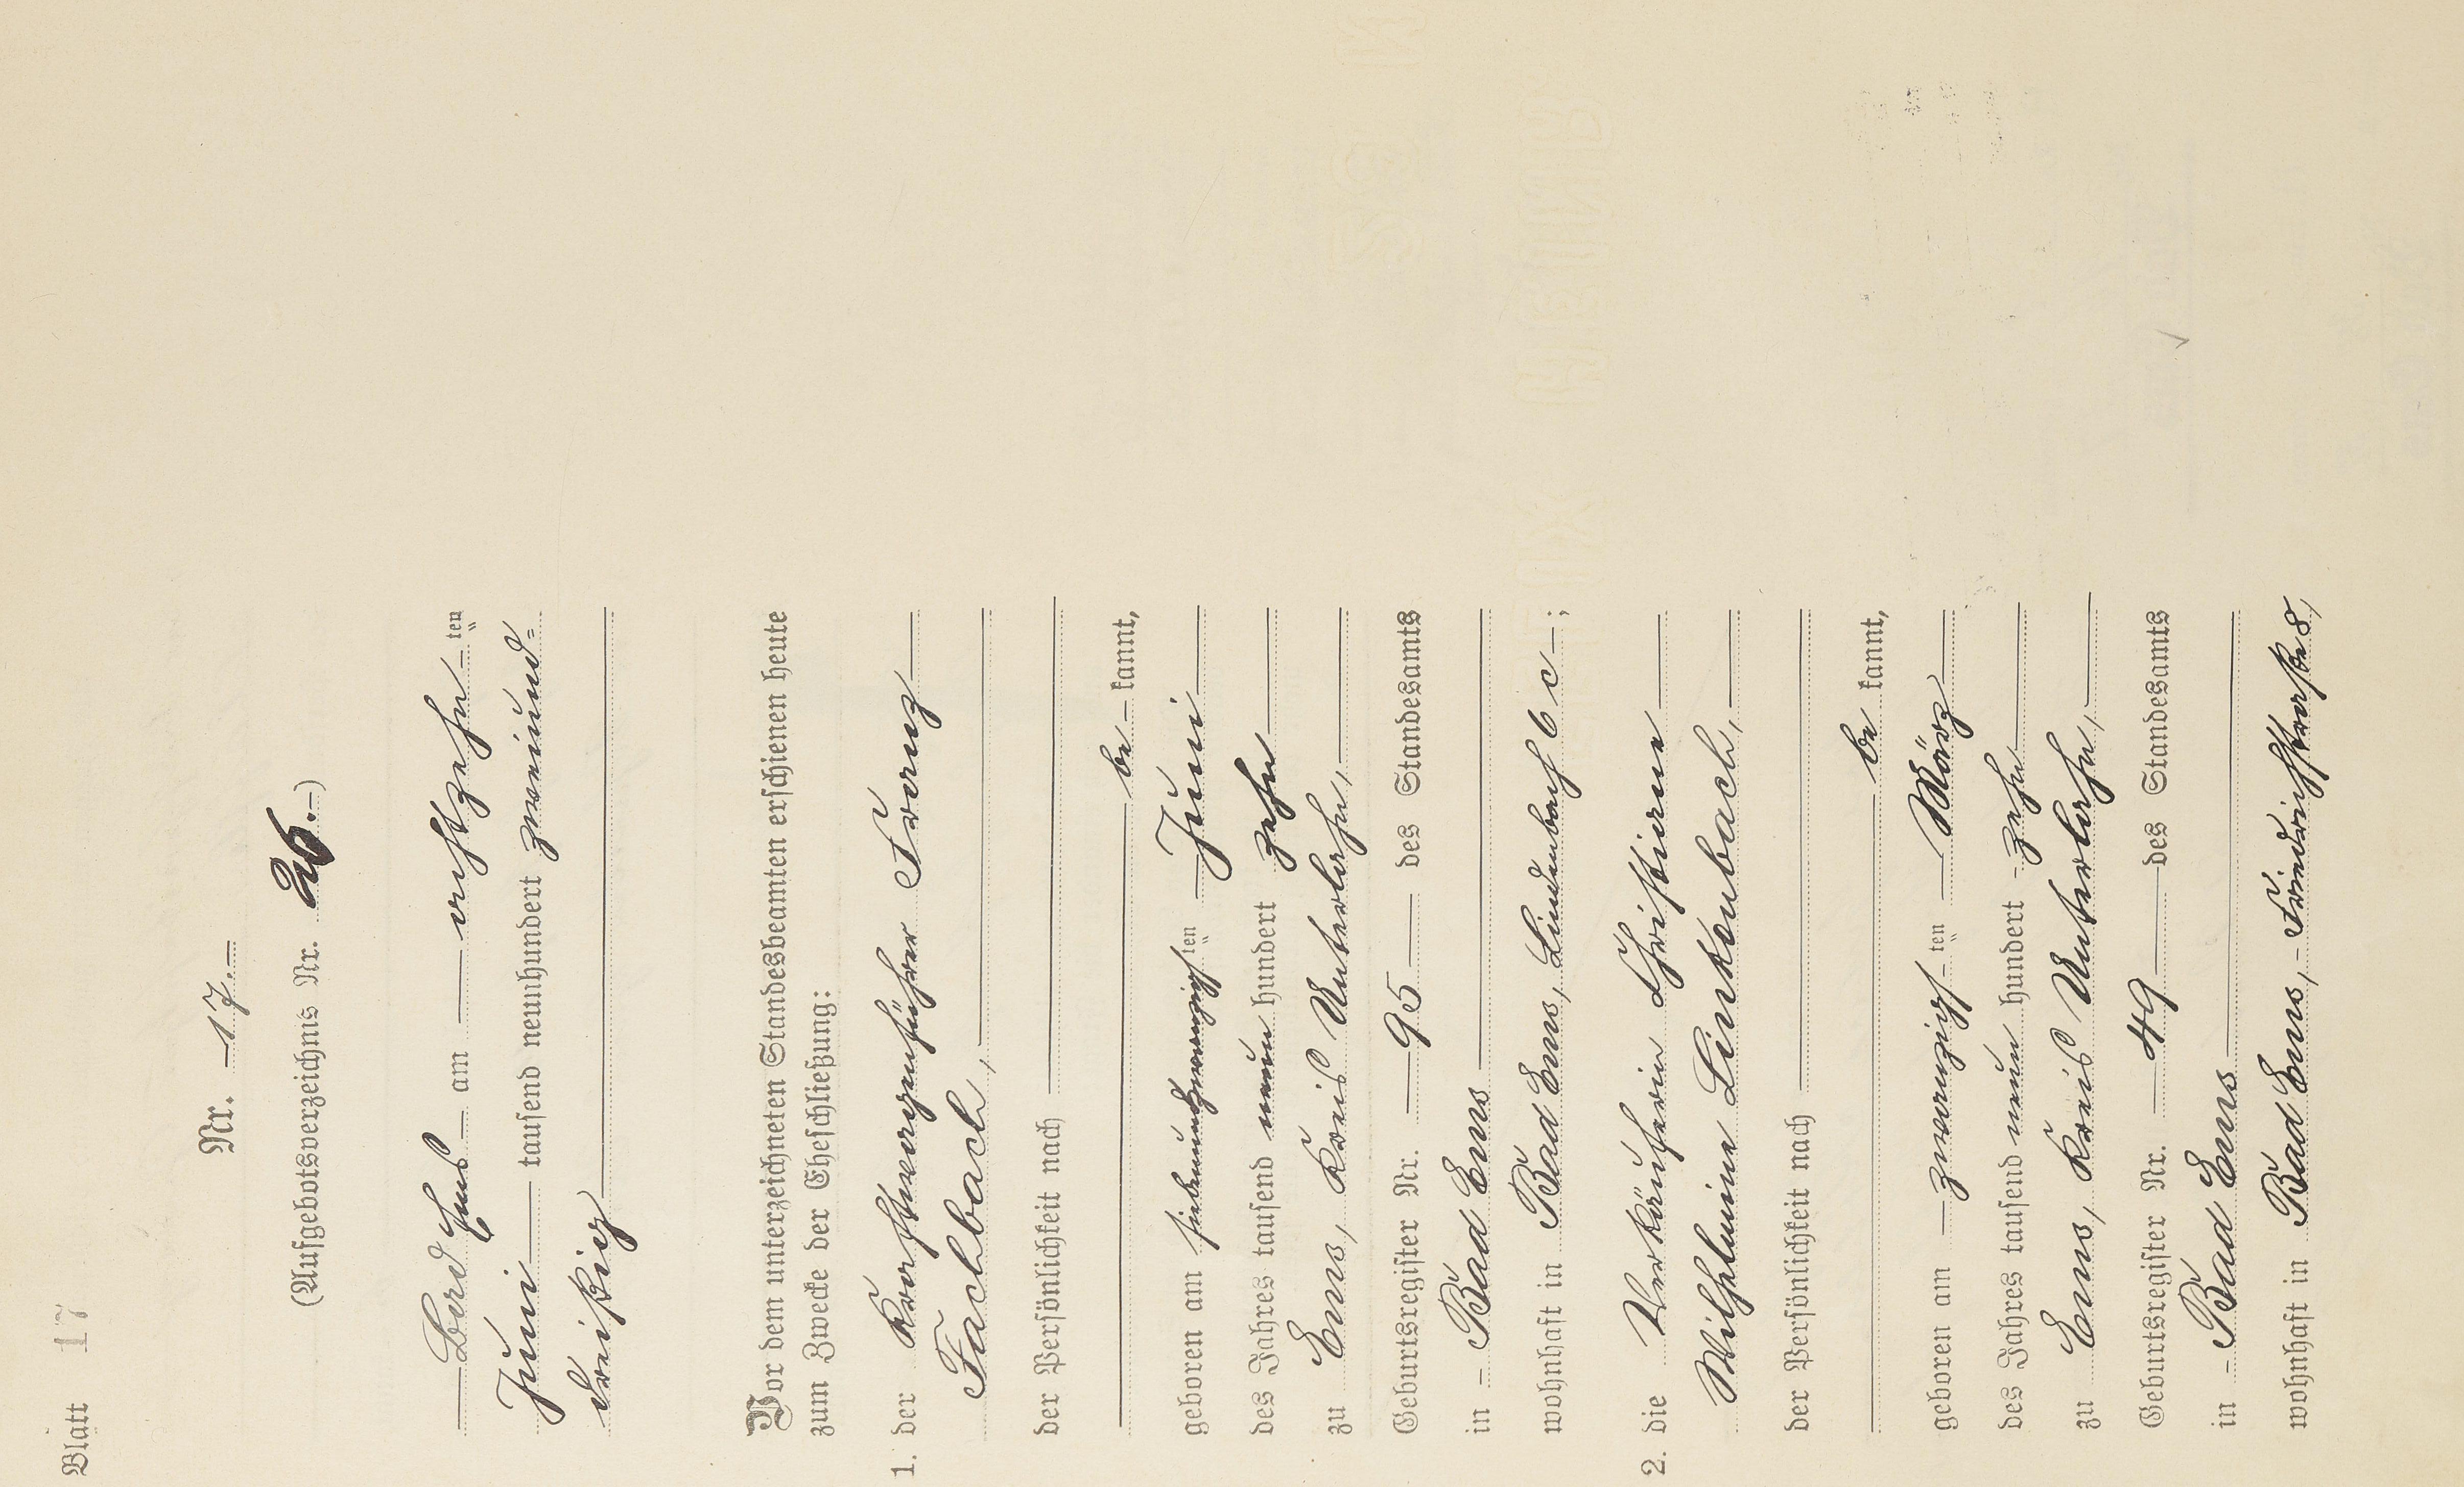 Blatt 17
Nr. 17.
(Aufgebotsverzeichnis Nr. 26.)
Bad Ems am achtzehnten
Juni tausend neunhundert zweiund=
dreißig
Vor dem unterzeichneten Standesbeamten erschienen heute
zum Zwecke der Eheschließung:
1. der Kraftwagenführer Franz
Fachbach,
der Persönlichkeit nach
be kannt,
geboren am siebenundzwanzigsten Juni
des Jahres tausend neun hundert zehn
zu Ems, Kreis Unterlahn,
Geburtsregister Nr. 95 des Standesamts
in Bad Ems
wohnhaft in Bad Ems, Lindenbach 6 c;
2. die Verkäuferin Christiane
Wilhelmine Linkenbach,
der Persönlichkeit nach
be kannt,
geboren am zwanzigsten März
des Jahres tausend neun hundert zehn
zu Ems, Kreis Unterlahn,
Geburtsregister Nr. 49 des Standesamts
in Bad Ems
wohnhaft in Bad Ems, Friedrichstraße 8,